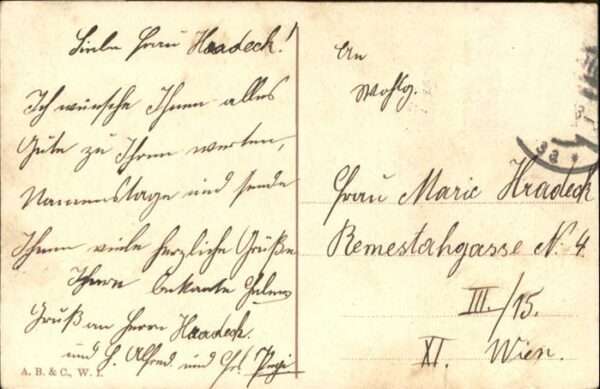 Liebe Frau Hradeck!
Ich wünsche Ihnen alles
Gute zu Ihrem werten,
Namenstage und sende
Ihnen viele herzliche Grüße
Ihnen bekante
Gruß an Herrn Hradeck.
und H. Alfred und
A. B. & C., W. I.
An
Wohlg.
Frau Marie Hradeck
Remestahgasse N. 4
III./15.
XI. Wien.